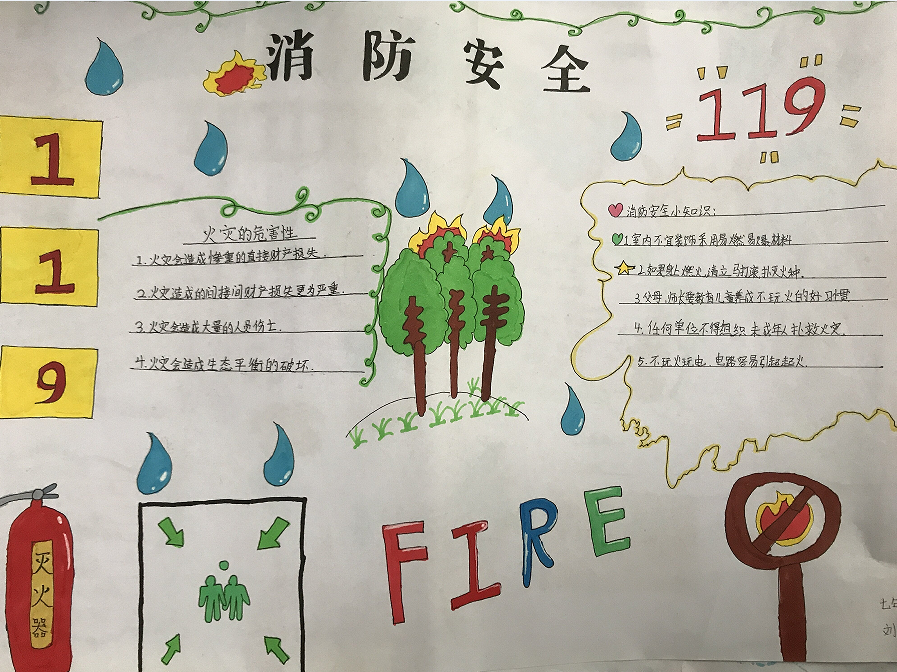 消防安全
119
1
1
9
火灾的危害性
1.火灾会造成惨重的直接财产损失.
2.火灾造成的间接间财产损失更为严重.
3.火灾会造成大量的人员伤亡.
4.火灾会造成生态平衡的破坏.
消防安全小知识:
1.室内不宜装饰采用易燃易爆材料
2.如果身上燃火,请立马打滚扑灭火种.
3.父母,师长要教育儿童养成不玩火的好习惯
4.任何单位不得组织未成年人扑救火灾.
5.不玩火玩电.电路容易引起起火.
FIRE
灭火器
七年
刘